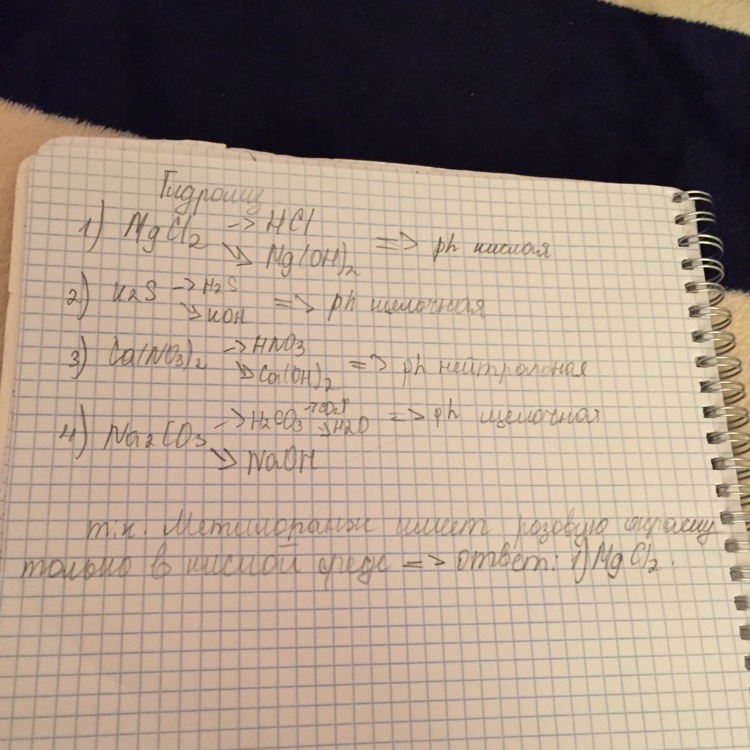 Гидролиз
1) MgCl2 → HCl
↘ Mg(OH)2 => ph кислая
2) K2S → H2S
↘ KOH => ph щелочная
3) Ca(NO3)2 → HNO3
↘ Ca(OH)2 => ph нейтральная
4) Na2CO3 → H2CO3 → CO2↑ ↘ H2O => ph щелочная
↘ NaOH
т.к. Метилоранж имеет розовую окраску
только в кислой среде => ответ: 1) MgCl2.